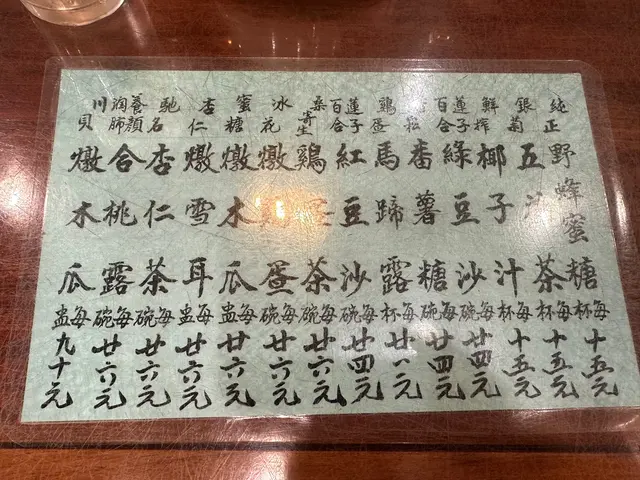 純正野蜂蜜糖每杯十五元
銀菊五茶每杯十五元
鮮搾椰子汁每杯十五元
蓮子百合綠豆沙每碗廿四元
番薯糖每碗廿四元
鷄蛋馬蹄露每杯廿八元
蓮子百合紅豆沙每碗廿四元
桑寄生鷄蛋茶每碗廿六元
冰花燉鷄蛋每碗廿六元
蜜糖燉木瓜每盅廿六元
杏仁燉雪耳每盅廿六元
馳名杏仁茶每碗廿六元
養顏潤肺合桃露每碗廿六元
川貝燉木瓜每盅九十元